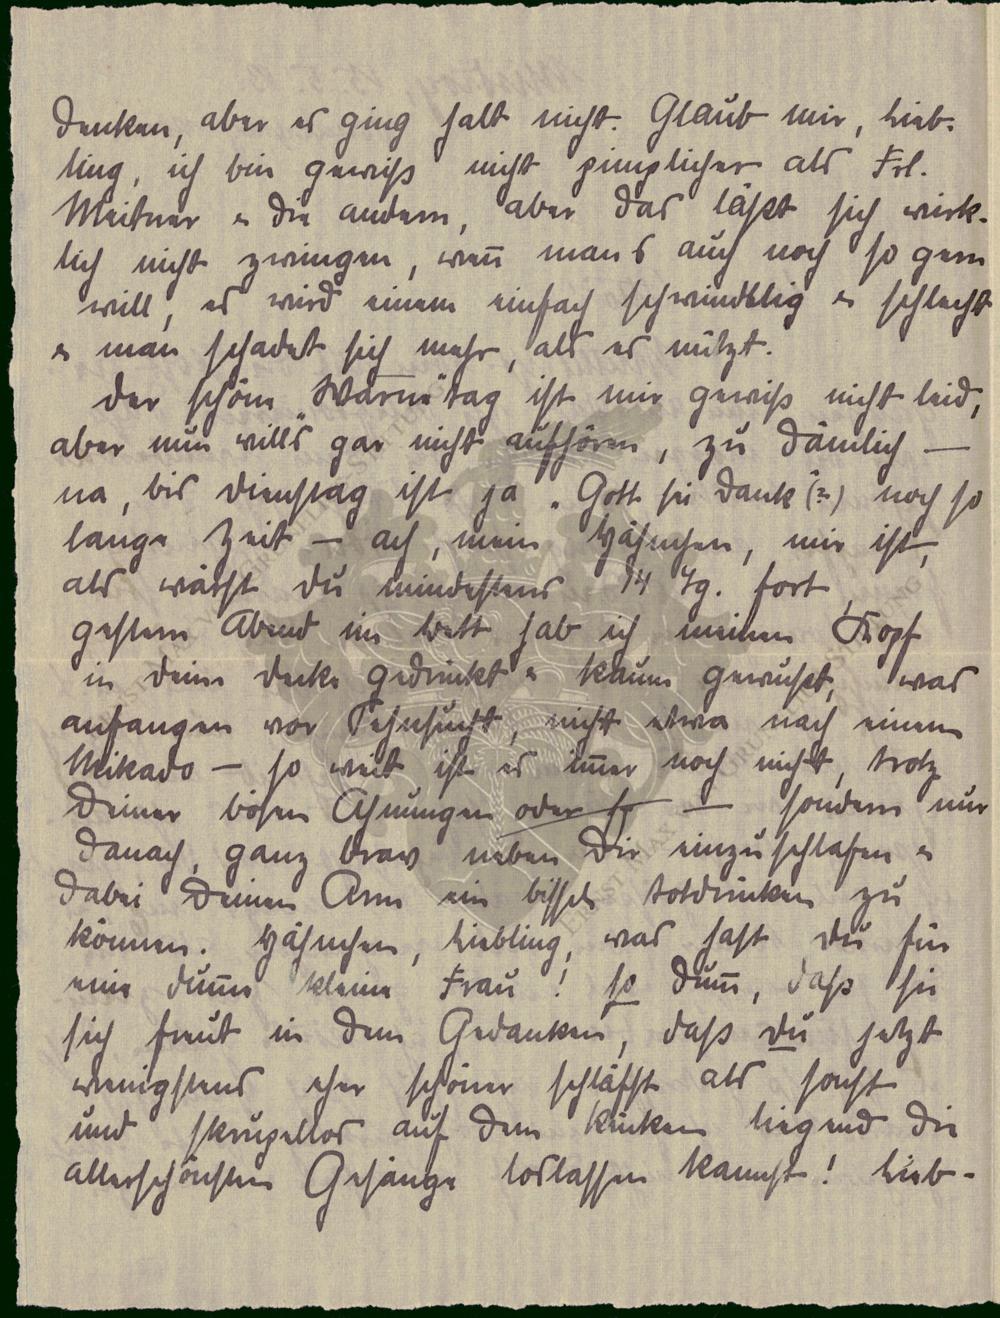 denken, aber es ging halt nicht. Glaub mir, Lieb-
ling, ich bin gewiß nicht pimplicher als Frl.
Meitner u die andern, aber das läßt sich wirk-
lich nicht zwingen, weñ mans auch noch so gern
will, es wird einem einfach schwindlig u schlecht
u man schadet sich mehr, als es nützt.
Der schöne "Wärme"tag ist mir gewiß nicht leid,
aber nun will's gar nicht aufhören, zu dämlich —
na, bis Dienstag ist ja "Gott sei Dank" (?) noch so
lange Zeit — ach, mein Hähnchen, mir ist,
als wärst du mindestens 14 Tg. fort,
gestern Abend im Bett hab ich meinen Kopf
in deine Decke gedrückt u kaum gewußt, was
anfangen vor Sehnsucht, nicht etwa nach einem
Mikado — so weit ist es im̃er noch nicht, trotz
Deiner bösen Ahnungen oder — sondern nur
danach, ganz brav neben Dir einzuschlafen u
dabei Deinen Arm ein bissch totdrücken zu
können. Hähnchen, Liebling, was hast du für
eine dum̃e kleine Frau! so dum̃, daß sie
sich freut in dem Gedanken, daß du jetzt
wenigstens eher schöner schläfst als sonst
und skrupellos auf dem Rücken liegend die
allerschönsten Gesänge loslassen kannst! Lieb-